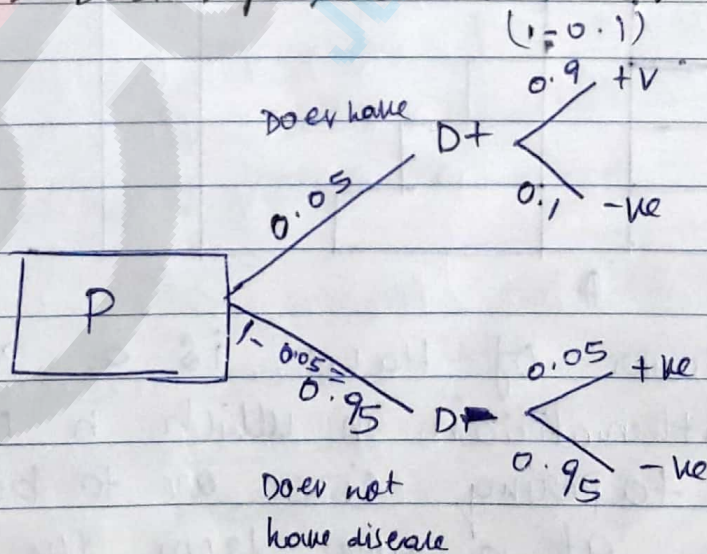 (1-0.1)
0.9 +v
Does have
D+
0.05
0.1 -ve
P
1-0.05=
0.95
0.05 +ve
D-
0.95 -ve
Does not
have disease